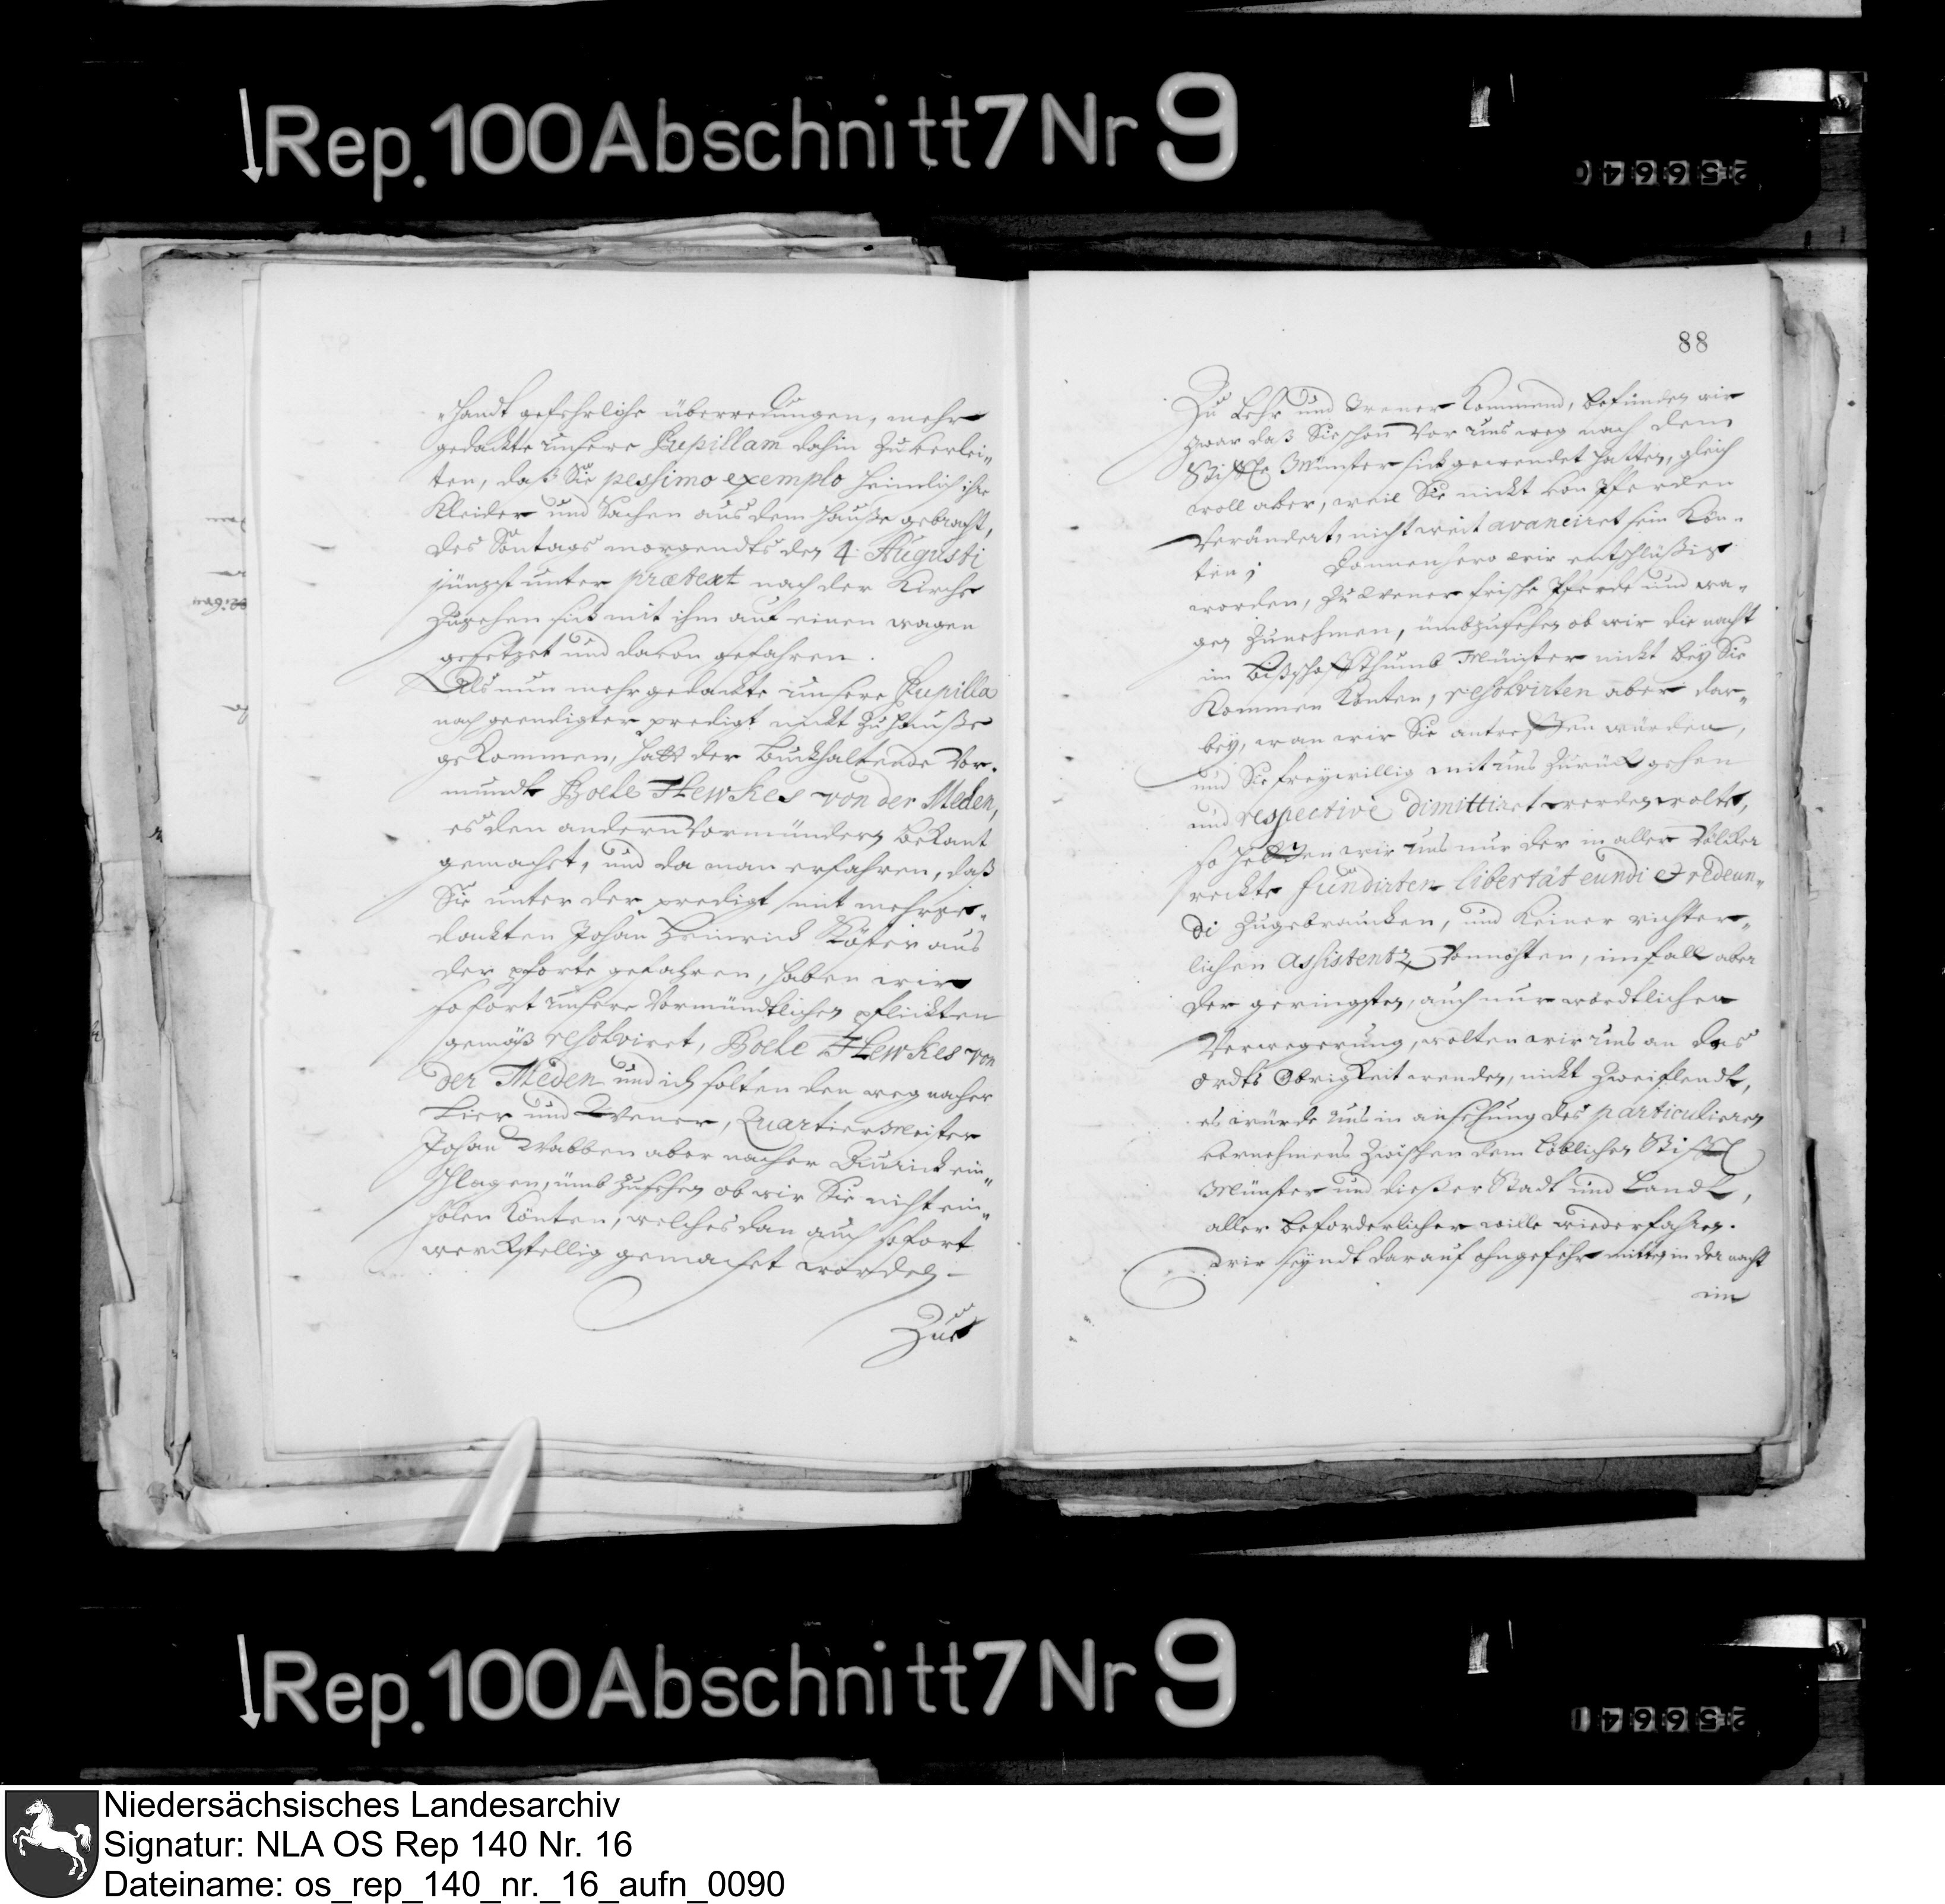 Rep. 100 Abschnitt 7 Nr 9
handt gefehrliche überredungen, mehr
gedachte unsere Pupillam dahin zu verlei„
ten, daß Sie pessimo exemplo heimlich ihre
Kleider und Sachen aus dem Hauße gebracht,
des Sontags morgendts den 4. Augusti
jüngst unter prætext nach der Kirche
zugehen sich mit ihm auf einen wagen
gesetzet und davon gefahren.
Als nun mehrgedachte unsere Pupilla
nach geendigter predigt nicht zu Hauße
gekommen, hatt der Buchhaltende Vor„
mundt Boele Hewkes von der Meden,
es den andern Vormündern bekant
gemachet, und da man erfahren, daß
Sie unter der predigt mit mehrge„
dachten Johan Heinrich Köster aus
der pforte gefahren, haben wir
sofort unsere Vormündtlichen pflichten
gemäß resolviret, Boele Hewkes von
der Meden und ich solten den weg nacher
Lier und Wener, Quartier Meister
Johan Wabben aber nacher Aurich ein„
schlagen, umb zusehen ob wir Sie nicht ein„
holen könten, welches dan auch sofort
werckstellig gemachet worden –
Zu
88
Zu Lehr und Wener kommend, befunden wir
zwar daß Sie schon vor uns weg nach dem
Stiffte Münster sich gewendet hatten, gleich
woll aber, weil Sie nicht von Pferden
verändert, nicht weit avanciret sein kön„
ten; Dannenhero wir entschlüßig
worden, zu Wener frische Pferde und wa„
gen zunehmen, umbzusehen ob wir die nacht
im Bischoffthumb Münster nicht bey Sie
kommen könten, resolvirten aber dar„
bey, wan wir Sie antreffen würden,
und Sie freywillig mit uns zurück gehen
und respective dimittiret werden wolte,
so hetten wir uns nur der in aller Völcker
rechte fundirten libertät eundi et redeun„
di zugebrauchen, und keiner richter„
lichen assistentz vonnöhten, imfall aber
der geringsten, auch nur wördtlichen
Verwegerung, wolten wir uns an des
ordts Obrigkeit wenden, nicht zweiflendt,
es würde uns in ansehung des particulieren
vernehmens zwischen dem löblichen Stifft
Münster und dießer Stadt und Landt,
aller beforderlicher wille wiederfahren.
Wir seyndt darauf ohngefehr mitten in der nacht
im
Rep. 100 Abschnitt 7 Nr 9
Niedersächsisches Landesarchiv
Signatur: NLA OS Rep 140 Nr. 16
Dateiname: os_rep_140_nr._16_aufn_0090